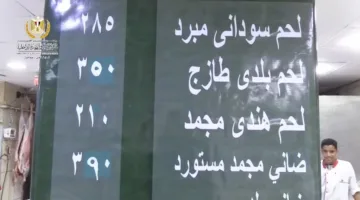 لحم سودانى مبرد ٢٨٥
لحم بلدى طازج ٣٥٠
لحم هندى مجمد ٢١٠
ضاني مجمد مستورد ٣٩٠